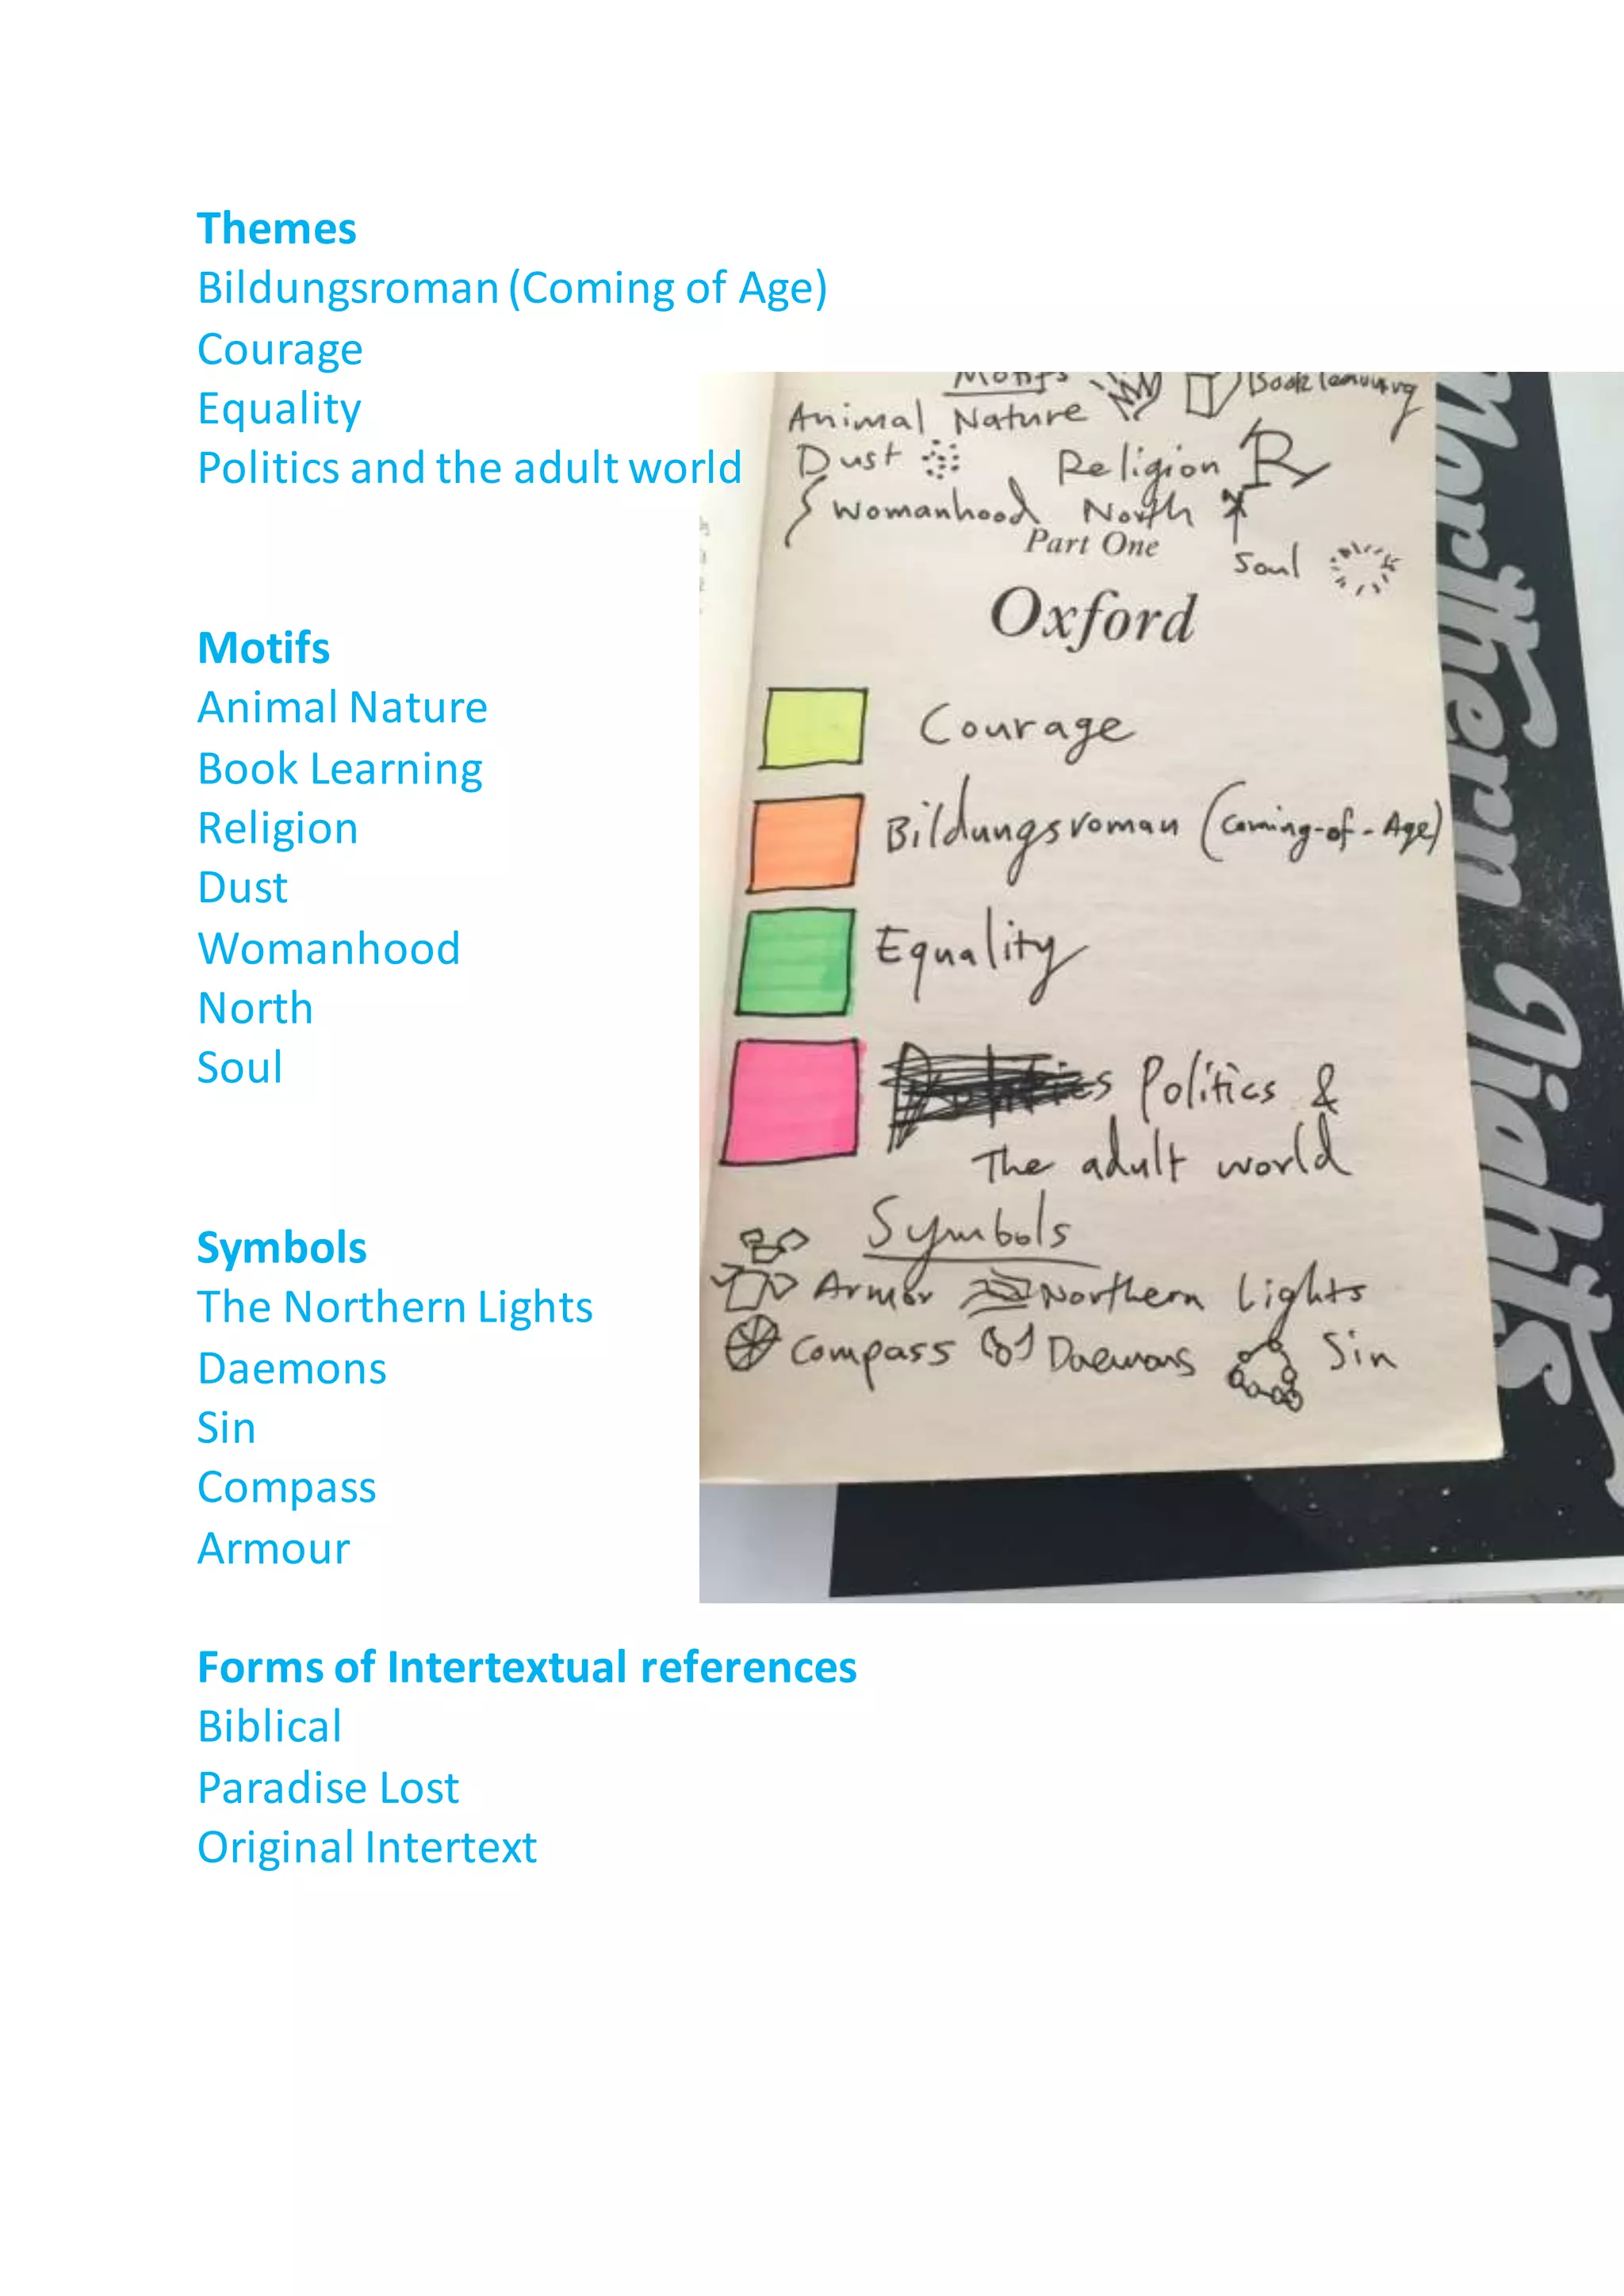 Themes
Bildungsroman (Coming of Age)
Courage
Equality
Politics and the adult world
Motifs
Animal Nature
Book Learning
Religion
Dust
Womanhood
North
Soul
Symbols
The Northern Lights
Daemons
Sin
Compass
Armour
Forms of Intertextual references
Biblical
Paradise Lost
Original Intertext
Motifs Book learning
Animal Nature
Dust Religion R
Womanhood North
Part One
Soul
Oxford
Courage
Bildungsroman (Coming-of-Age)
Equality
Politics &
The adult world
Symbols
Armor Northern Lights
Compass Daemons Sin
Northern Lights